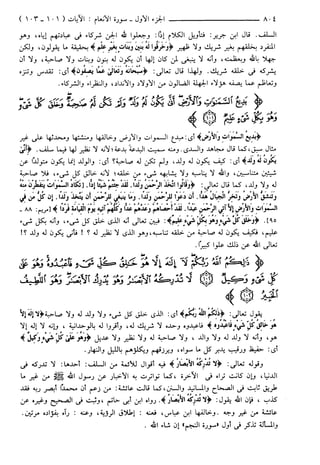 ٨٠٤ الجزء الأول - سورة الأنعام: الآيات (١٠١ - ١٠٣)
السلف. قال ابن جرير: فتأويل الكلام إذًا: وجعلوا لله الجن شركاء في عبادتهم إياه، وهو
المنفرد بخلقهم بغير شريك ولا ظهير ﴿وخرقوا له بنين وبنات بغير علم﴾ بحقيقة ما يقولون، ولكن
جهلا بالله وبعظمته، وأنه لا ينبغي لمن كان إلهًا أن يكون له بنون وبنات ولا صاحبة، ولا أن
يشركه في خلقه شريك. ولهذا قال تعالى: ﴿سبحانه وتعالى عما يصفون﴾ أي: تقدس وتنزه
وتعاظم عما يصفه هؤلاء الجهلة الضالون من الأولاد والأنداد، والنظراء والشركاء.
بديع السموات والأرض أنى يكون له ولد ولم تكن له صاحبة وخلق كل شيء وهو
بكل شيء عليم
﴿بديع السموات والأرض﴾ أي: مبدع السموات والأرض وخالقها ومنشئها ومحدثها على غير
مثال سبق، كما قال مجاهد والسدي. ومنه سميت البدعة بدعة؛ لأنه لا نظير لها فيما سلف. ﴿أنى
يكون له ولد﴾ أي: كيف يكون له ولد، ولم تكن له صاحبة؟ أي: والولد إنما يكون متولدًا عن
شيئين متناسبين، والله لا يناسبه ولا يشابهه شيء من خلقه؛ لأنه خالق كل شيء، فلا صاحبة
له ولا ولد، كما قال تعالى: ﴿وقالوا اتخذ الرحمن ولدا. لقد جئتم شيئا إدا. تكاد السموات يتفطرن منه
وتنشق الأرض وتخر الجبال هدا. أن دعوا للرحمن ولدا. وما ينبغي للرحمن أن يتخذ ولدا. إن كل من في
السموات والأرض إلا آتي الرحمن عبدا. لقد أحصاهم وعدهم عدا وكلهم آتيه يوم القيامة فردا﴾ [مريم: ٨٨ -
٩٥]. ﴿وخلق كل شيء وهو بكل شيء عليم﴾: فبين تعالى أنه الذي خلق كل شيء، وأنه بكل شيء
عليم، فكيف يكون له صاحبة من خلقه تناسبه، وهو الذي لا نظير له؟ فأنى يكون له ولد؟!
تعالى الله عن ذلك علوا كبيرًا.
ذلكم الله ربكم لا إله إلا هو خالق كل شيء فاعبدوه وهو على كل شيء
وكيل لا تدركه الأبصار وهو يدرك الأبصار وهو اللطيف
الخبير
يقول تعالى: ﴿ذلكم الله ربكم﴾ أي: الذي خلق كل شيء ولا ولد له ولا صاحبة ﴿لا إله إلا
هو خالق كل شيء فاعبدوه﴾ فاعبدوه وحده لا شريك له، وأقروا له بالوحدانية، وأنه لا إله إلا
هو، وأنه لا ولد له ولا والد، ولا صاحبة له ولا نظير ولا عديل ﴿وهو على كل شيء وكيل﴾
أي: حفيظ ورقيب يدبر كل ما سواه، ويرزقهم ويكلؤهم بالليل والنهار.
وقوله تعالى: ﴿لا تدركه الأبصار﴾ فيه أقوال للأئمة من السلف: أحدها: لا تدركه في
الدنيا، وإن كانت تراه في الآخرة، كما تواترت به الأخبار عن رسول الله ﷺ من غير ما
طريق ثابت في الصحاح والمسانيد والسنن، كما قالت عائشة: من زعم أن محمدًا أبصر ربه فقد
كذب، فإن الله يقول: ﴿لا تدركه الأبصار﴾. رواه ابن أبي حاتم، وثبت في الصحيح وغيره عن
عائشة من غير وجه. وخالفها ابن عباس، فعنه: إطلاق الرؤية، وعنه: رآه بفؤاده مرتين.
والمسألة تذكر في أول «سورة النجم» إن شاء الله.